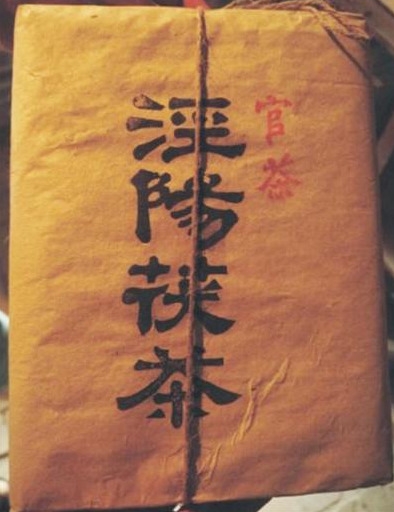 官茶
涇陽茯茶